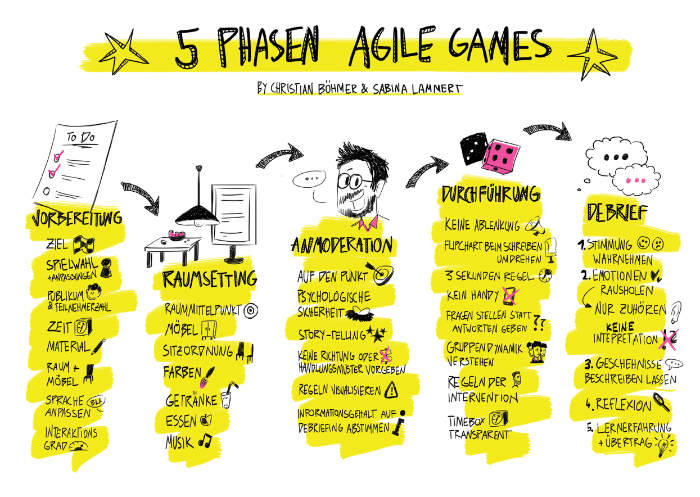 5 PHASEN AGILE GAMES
BY CHRISTIAN BÖHMER & SABINA LAMMERT
To Do
VORBEREITUNG
ZIEL
SPIELWAHL
+ANPASSUNGEN
PUBLIKUM
& TEILNEHMERZAHL
ZEIT
MATERIAL
RAUM +
MÖBEL
SPRACHE
ANPASSEN
INTERAKTIONS
GRAD
RAUMSETTING
RAUMMITTELPUNKT
MÖBEL
SITZORDNUNG
FARBEN
GETRÄNKE
ESSEN
MUSIK
ANMODERATION
AUF DEN PUNKT
PSYCHOLOGISCHE
SICHERHEIT
STORY-TELLING
KEINE RICHTUNG ODER
HANDLUNGSMUSTER VORGEBEN
REGELN VISUALISIEREN
INFORMATIONSGEHALT AUF
DEBRIEFING ABSTIMMEN
DURCHFÜHRUNG
KEINE ABLENKUNG
FLIPCHART BEIM SCHREIBEN
UMDREHEN
3 SEKUNDEN REGEL
KEIN HANDY
FRAGEN STELLEN STATT
ANTWORTEN GEBEN ??
GRUPPENDYNAMIK
VERSTEHEN
REGELN DER
INTERVENTION
TIMEBOX
TRANSPARENT
DEBRIEF
1. STIMMUNG
WAHRNEHMEN
2. EMOTIONEN
RAUSHOLEN
NUR ZUHÖREN
KEINE
INTEPRETATION
3. GESCHEHNISSE
BESCHREIBEN LASSEN
4. REFLEXION
5. LERNERFAHRUNG
+ ÜBERTRAG